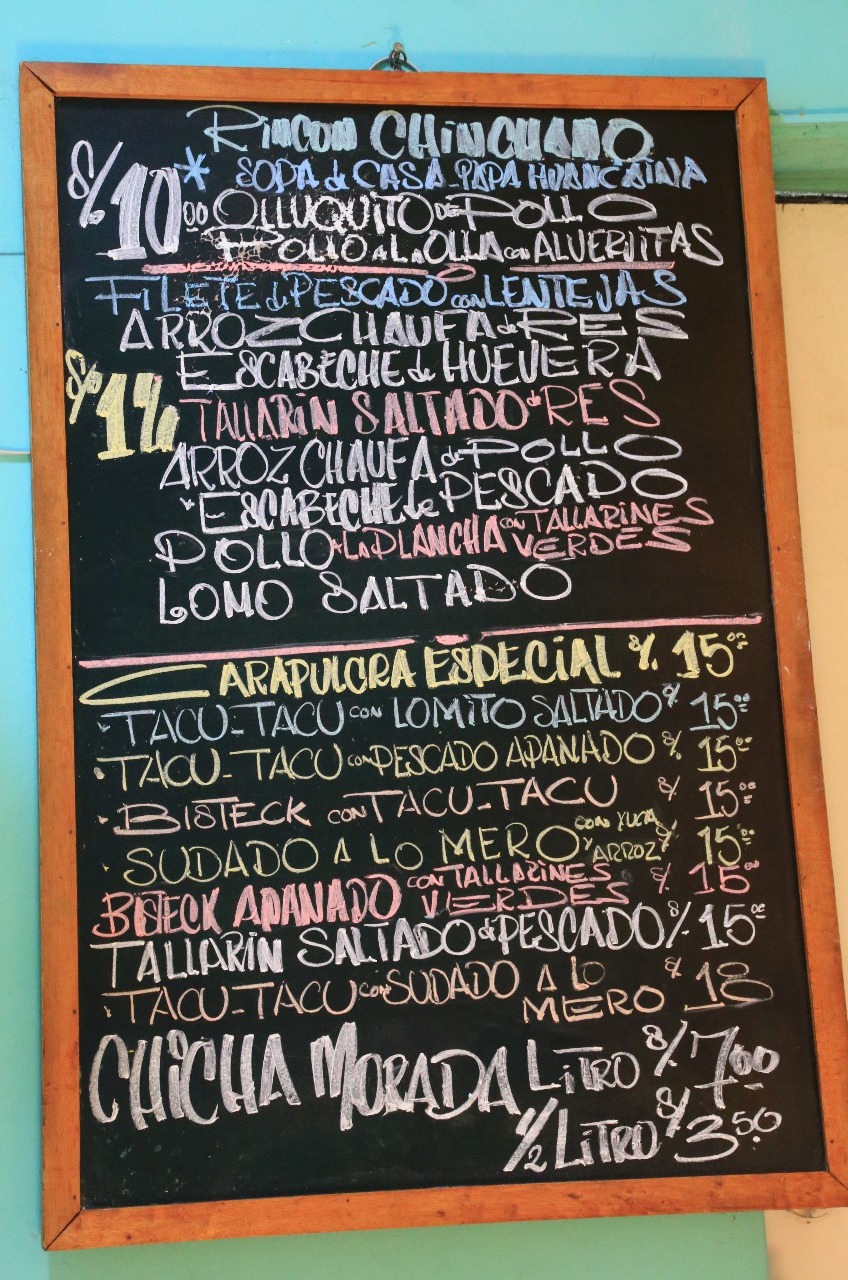 RINCON CHINCHANO
S/. 10.00 * SOPA de CASA - PAPA HUANCAINA
OLLUQUITO DE POLLO
POLLO A LA OLLA con ALVERJITAS
FILETE de PESCADO con LENTEJAS
ARROZ CHAUFA de RES
ESCABECHE de HUEVERA
S/. TALLARIN SALTADO de RES
ARROZ CHAUFA de POLLO
ESCABECHE de PESCADO
POLLO a La PLANCHA con TALLARINES VERDES
LOMO SALTADO
CARAPULCRA ESPECIAL S/. 15.00
TACU-TACU con LOMITO SALTADO S/. 15.00
TACU-TACU con PESCADO APANADO S/. 15.00
BISTECK con TACU-TACU S/. 15.00
SUDADO A LO MERO CON YUCA Y ARROZ S/. 15.00
BISTECK APANADO con TALLARINES VERDES S/. 15.00
TALLARIN SALTADO de PESCADO S/. 15.00
TACU-TACU con SUDADO A LO MERO S/. 18
CHICHA MORADA LITRO S/. 7.00
1/2 LITRO S/. 3.50